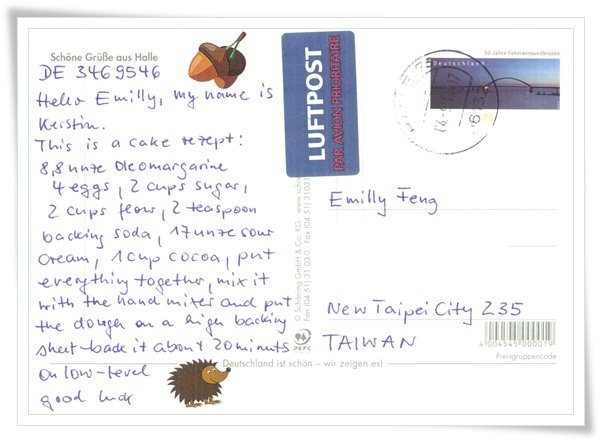 Schöne Grüße aus Halle
DE 3469546
Hello Emilly, my name is
Kerstin.
This is a cake rezept:
8,8 unze Oleomargarine
4 eggs, 2 cups sugar,
2 cups flour, 2 teaspoon
backing soda, 17 unze sour
cream, 1 cup cocoa, put
everything together, mix it
with the hand mixer and put
the dough on a high backing
sheet - back it about 20 minuts
on low-level
good luck
LUFTPOST
PAR AVION PRIORITAIRE
50 Jahre Fehmarnsundbrücke
Deutschland
Emilly Feng
New Taipei City 235
TAIWAN
© Schöning GmbH & Co. KG
PEFC
4 004545 000019
Preisgruppencode
Deutschland ist schön – wir zeigen es!